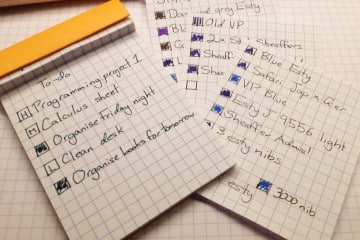 To do
Programming project 1
Calculus sheet
Organise friday night
Clean desk
Organise books for tomorrow
Esty
Old VP
2x
Sheaffers
Blue Esty
Safari
VP Blue
Esty J 9556 light
Sheaffer Admiral
3 esty nibs
esty
3000 nib